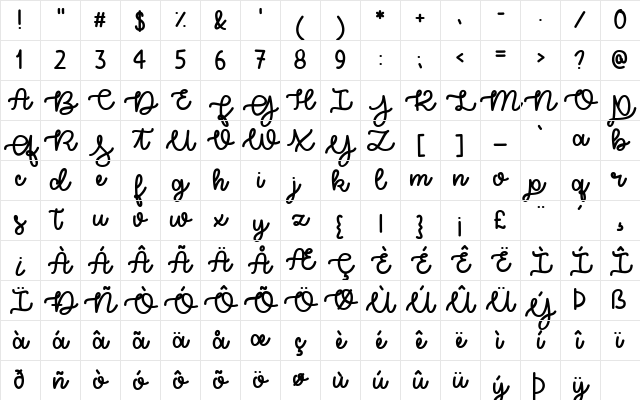 ! " # $ % & ' ( ) * + , - . / 0
1 2 3 4 5 6 7 8 9 : ; < = > ? @
A B C D E F G H I J K L M N O P
Q R S T U V W X Y Z [ ] _ ` a b
c d e f g h i j k l m n o p q r
s t u v w x y z { | } ¡ £ ¨ ´ ¸
¿ À Á Â Ã Ä Å Æ Ç È É Ê Ë Ì Í Î
Ï Ð Ñ Ò Ó Ô Õ Ö Ø Ù Ú Û Ü Ý Þ ß
à á â ã ä å æ ç è é ê ë ì í î ï
ð ñ ò ó ô õ ö ø ù ú û ü ý þ ÿ